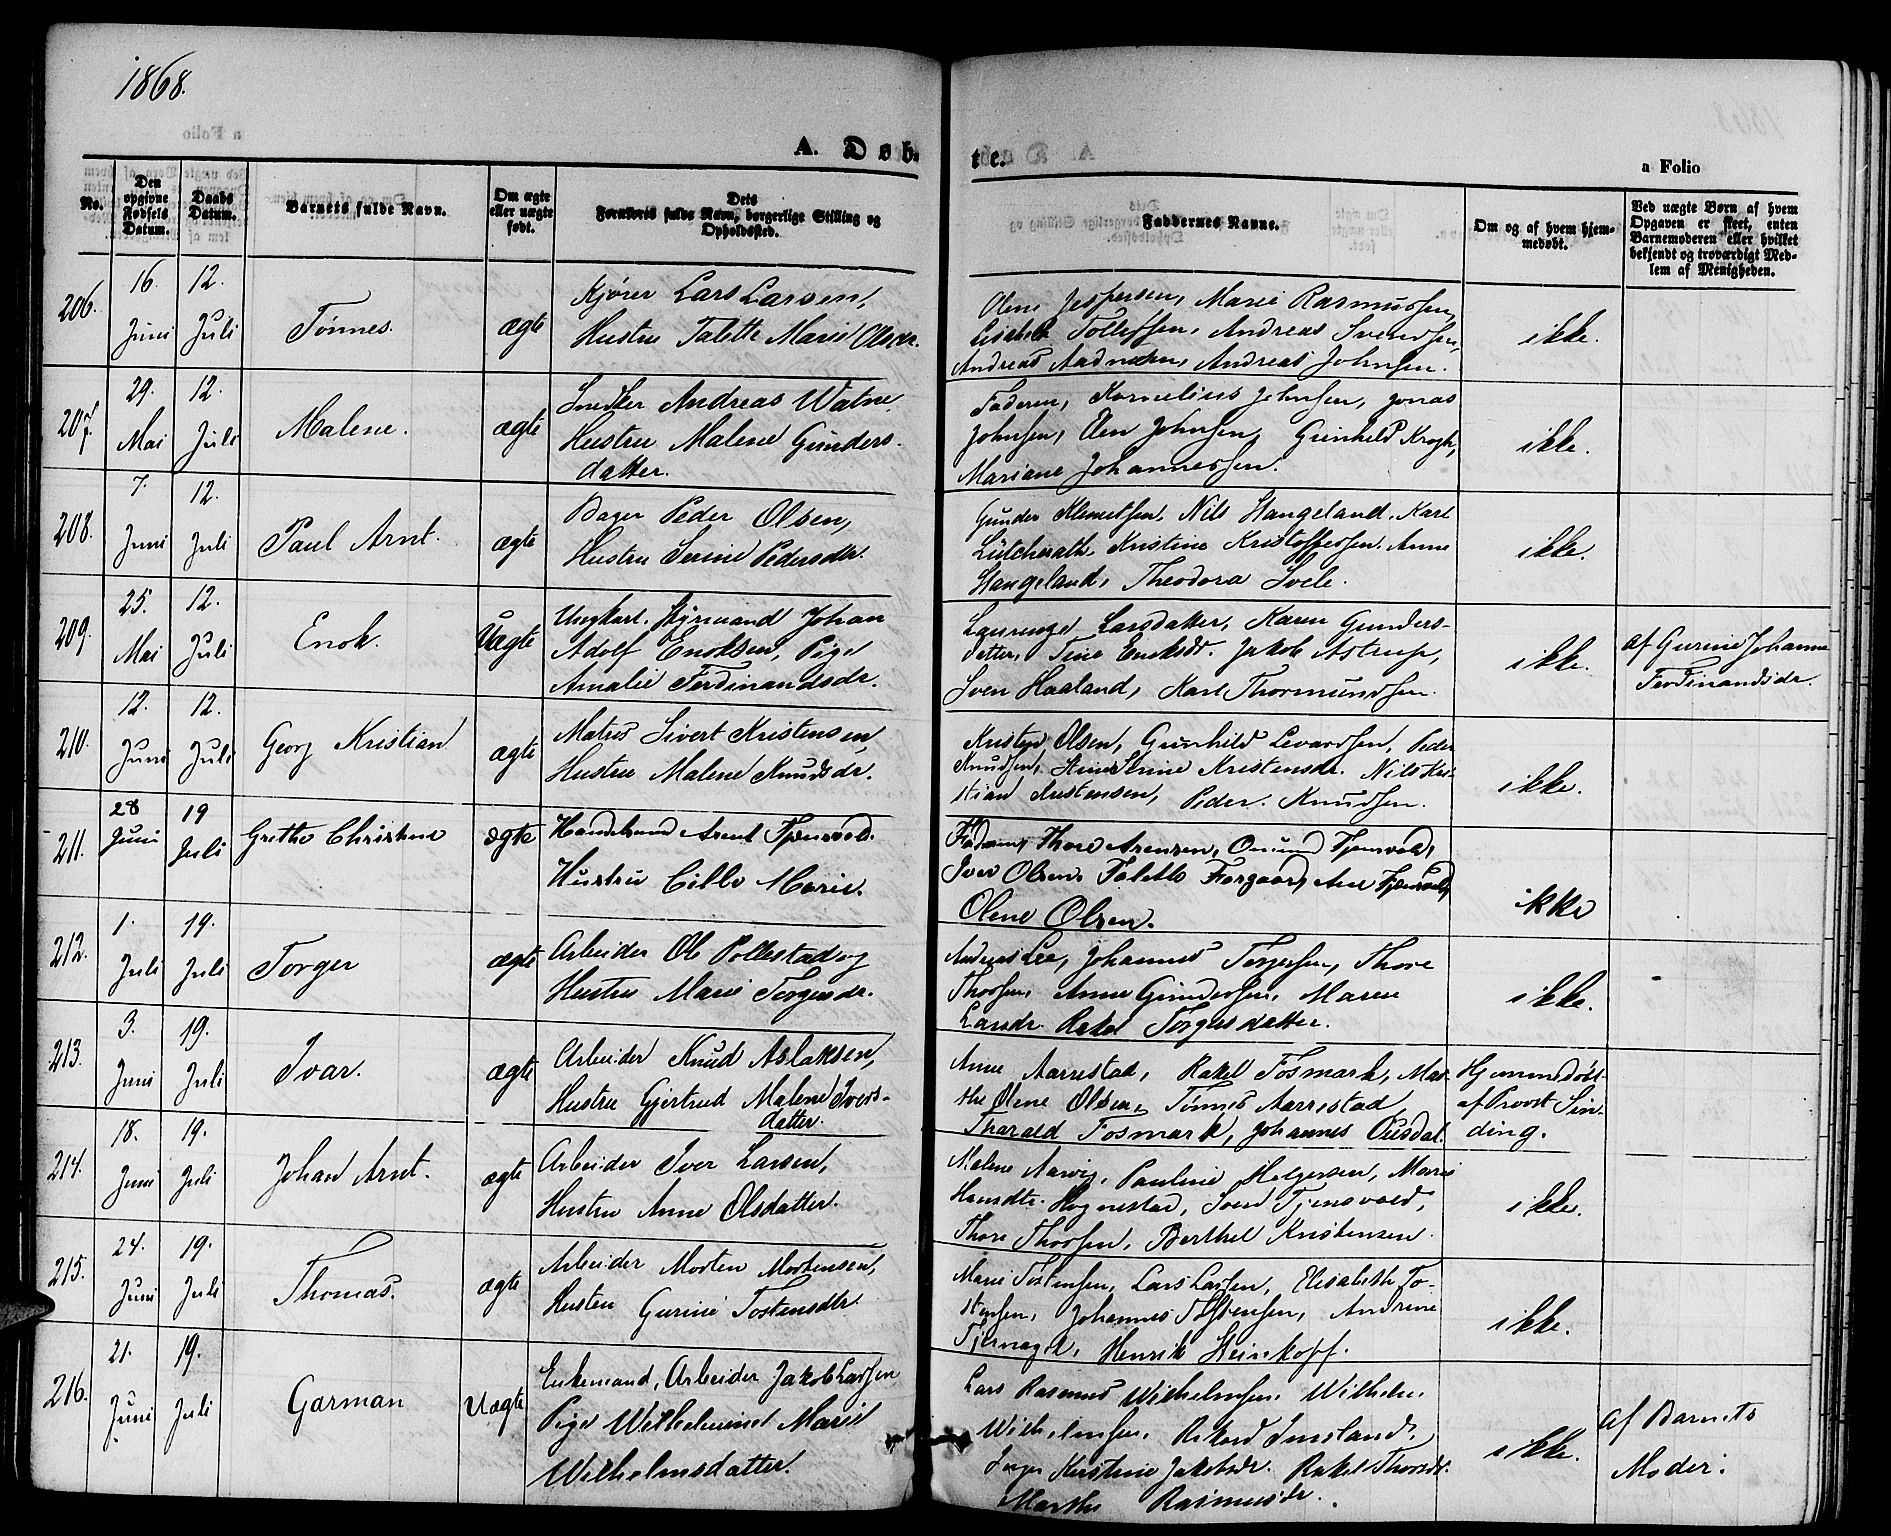 1868.
A. Døb-
te.
a Folio
No.
Den opgivne Fødsels Datum.
Daabs Datum.
Barnets fulde Navn.
Om ægte eller uægte født.
Dets Forældres fulde Navn, borgerlige Stilling og Opholdssted.
Faddernes Navne.
Om og af hvem hjemmedøbt.
Ved uægte Børn af hvem Opgaven er skeet, enten Barnemoderen eller hvilket bekjendt og troværdigt Medlem af Menigheden.
206. 16. Juni 12. Juli Tønnes. ægte
Kjører Lars Larsen,
Hustru Talette Marie Olsdr.
Olene Jespersen, Marie Rasmussen,
Lisabeth Tollefsen, Andreas Svendsen,
Andreas Aadnesen, Andreas Johnsen.
ikke.
207. 29. Mai 12. Juli Malene. ægte
Snedker Andreas Watne.
Hustru Malene Gunders-
datter.
Faderen, Kornelius Johnsen, Jonas
Johnsen, Johnsen, Gunhild Krogh,
Mariane Johannessen.
ikke.
208. 7. Juni 12. Juli Paul Arnt. ægte
Bager Peder Olsen,
Hustru Serine Pedersdr.
Gunder Klemetsen, Nils Hangeland, Karl
Lütcherath, Kristine Kristoffersen, Anne
Hangeland, Theodora Svele.
ikke.
209. 25. Mai 12. Juli Enok. Uægte
Ungkarl. Styrmand Johan
Adolf Enoksen, Pige
Amalie Ferdinandsdr.
Laurenze Larsdatter, Karen Gunders-
datter, Tine Eriksdr. Jakob Astrup,
Sven Haaland, Karl Thormundsen.
ikke.
Af Gurine Johanne
Ferdinandsdr.
210. 12. Juni 12. Juli Georg Kristian ægte
Matros Sivert Kristensen,
Hustru Malene Knudsdr.
Kristen Olsen, Gunhild Levardsen, Peder
Knudsen, Stine Serine Kristensdr. Nils Kri-
stian Kristensen, Peder Knudsen.
ikke.
211. 28 Juni 19 Juli Grethe Christine ægte
Handelsmd Arent Tjensvold.
Hustru Cille Marie.
Faderen, Thore Arensen, Onund Tjensvold,
Iver Olsen, Talette Forgaard, Ane Tjensvold,
Olene Olsen.
ikke
212. 1. Juli 19. Juli Torger ægte
Arbeider Ole Pollestad og
Hustru Marie Torgersdr.
Andreas Lea, Johannes Torgersen, Thore
Thorsen, Anne Gundersen, Maren
Larsdr. Rakel Torgersdatter.
ikke.
213. 3. Juni 19. Juli Ivar. ægte
Arbeider Knud Aslaksen,
Hustru Gjertrud Malene Ivers-
datter.
Anne Aarrestad, Rakel Fosmark, Mar-
the Olene Olsen, Tønnes Aarrestad
Tharald Fosmark, Johannes Ousdal.
Hjemmedøbt
af Provst Sin-
ding.
214. 18. Juni 19. Juli Johan Arnt. ægte
Arbeider Iver Larsen,
Hustru Anne Olsdatter.
Malene Aarvig, Pauline Holgersen, Marie
Hognestad, Sven Tjensvold,
Thore Thorsen, Berthel Kristensen.
ikke.
215. 24. Juni 19. Juli Thomas. ægte
Arbeider Morten Mortensen,
Hustru Gurine Tostensdtr.
Marie Tostensen, Lars Larsen, Elisabeth To-
stensen, Johannes Tostensen, Andrine
Tjernagel, Henrik Steinkopf.
ikke.
216. 21. Juni 19. Juli Garman Uægte
Enkemand, Arbeider Jakob Larsen
Pige Wilhelmine Marie
Wilhelmsdatter.
Lars Rasmus Wilhelmsen, Wilhelm
Wilhelmsen, Rikard Imsland,
Kirstine Jakobsdr. Rakel Thorsdr.
Marthe Rasmusdr.
ikke.
Af Barnets
Moder.